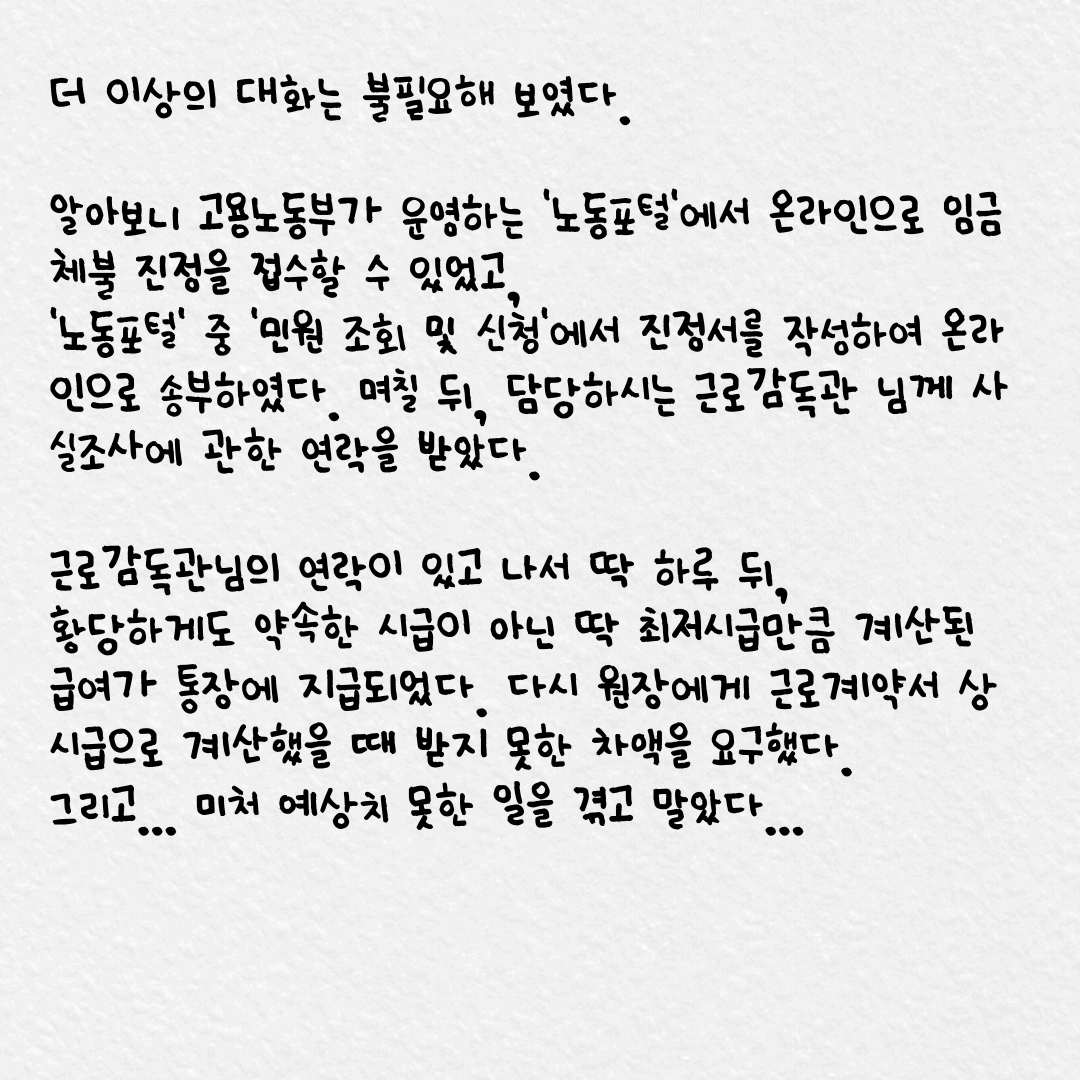 더 이상의 대화는 불필요해 보였다.
알아보니 고용노동부가 운영하는 '노동포털'에서 온라인으로 임금
체불 진정을 접수할 수 있었고,
'노동포털' 중 '민원 조회 및 신청'에서 진정서를 작성하여 온라
인으로 송부하였다. 며칠 뒤, 담당하시는 근로감독관 님께 사
실조사에 관한 연락을 받았다.
근로감독관님의 연락이 있고 나서 딱 하루 뒤,
황당하게도 약속한 시급이 아닌 딱 최저시급만큼 계산된
급여가 통장에 지급되었다. 다시 원장에게 근로계약서 상
시급으로 계산했을 때 받지 못한 차액을 요구했다.
그리고... 미처 예상치 못한 일을 겪고 말았다...